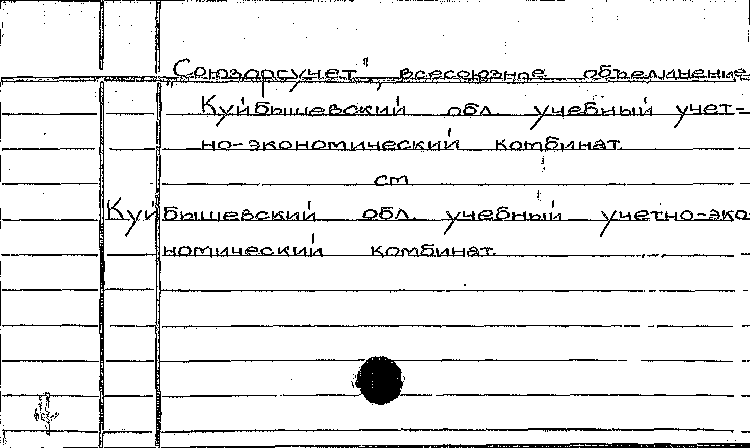 "Союзоргучет", всесоюзное объединение
Куйбышевский обл. учебный учет-
но-экономический комбинат
см
Куйбышевский обл. учебный учетно-эко-
номический комбинат.